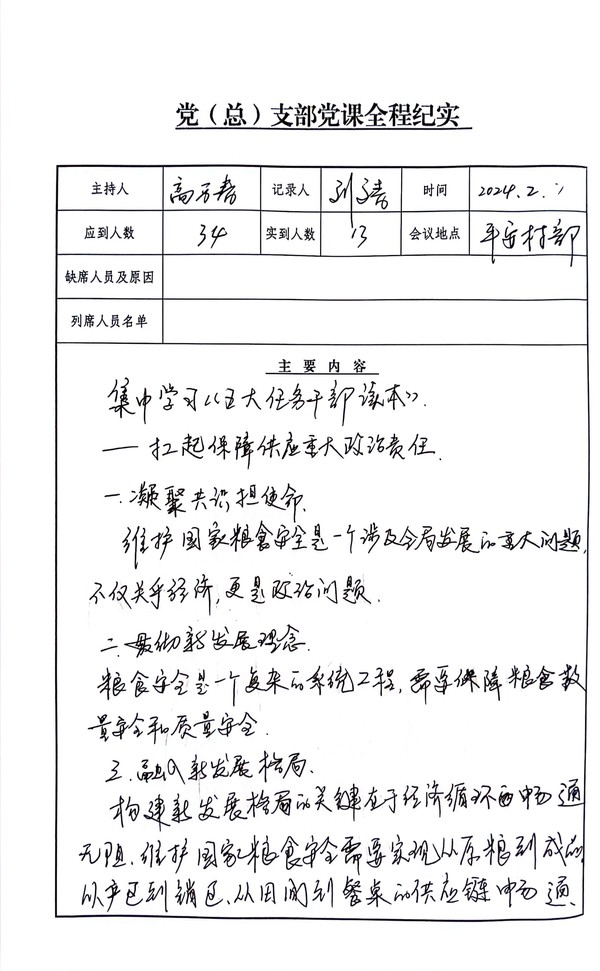 党（总）支部党课全程纪实
主持人 高万春 记录人 时间 2024.2.
应到人数 34 实到人数 13 会议地点 平安村部
缺席人员及原因
列席人员名单
主 要 内 容
集中学习《五大任务干部读本》.
—— 扛起保障供应重大政治责任.
一.凝聚共识担使命.
维护国家粮食安全是一个涉及全局发展的重大问题,
不仅关乎经济,更是政治问题.
二.贯彻新发展理念.
粮食安全是一个复杂的系统工程,需要保障粮食数
量安全和质量安全.
三.融入新发展格局.
构建新发展格局的关键在于经济循环的畅通
无阻.维护国家粮食安全需要实现从原粮到成品,
从产区到销区、从田间到餐桌的供应链畅通.